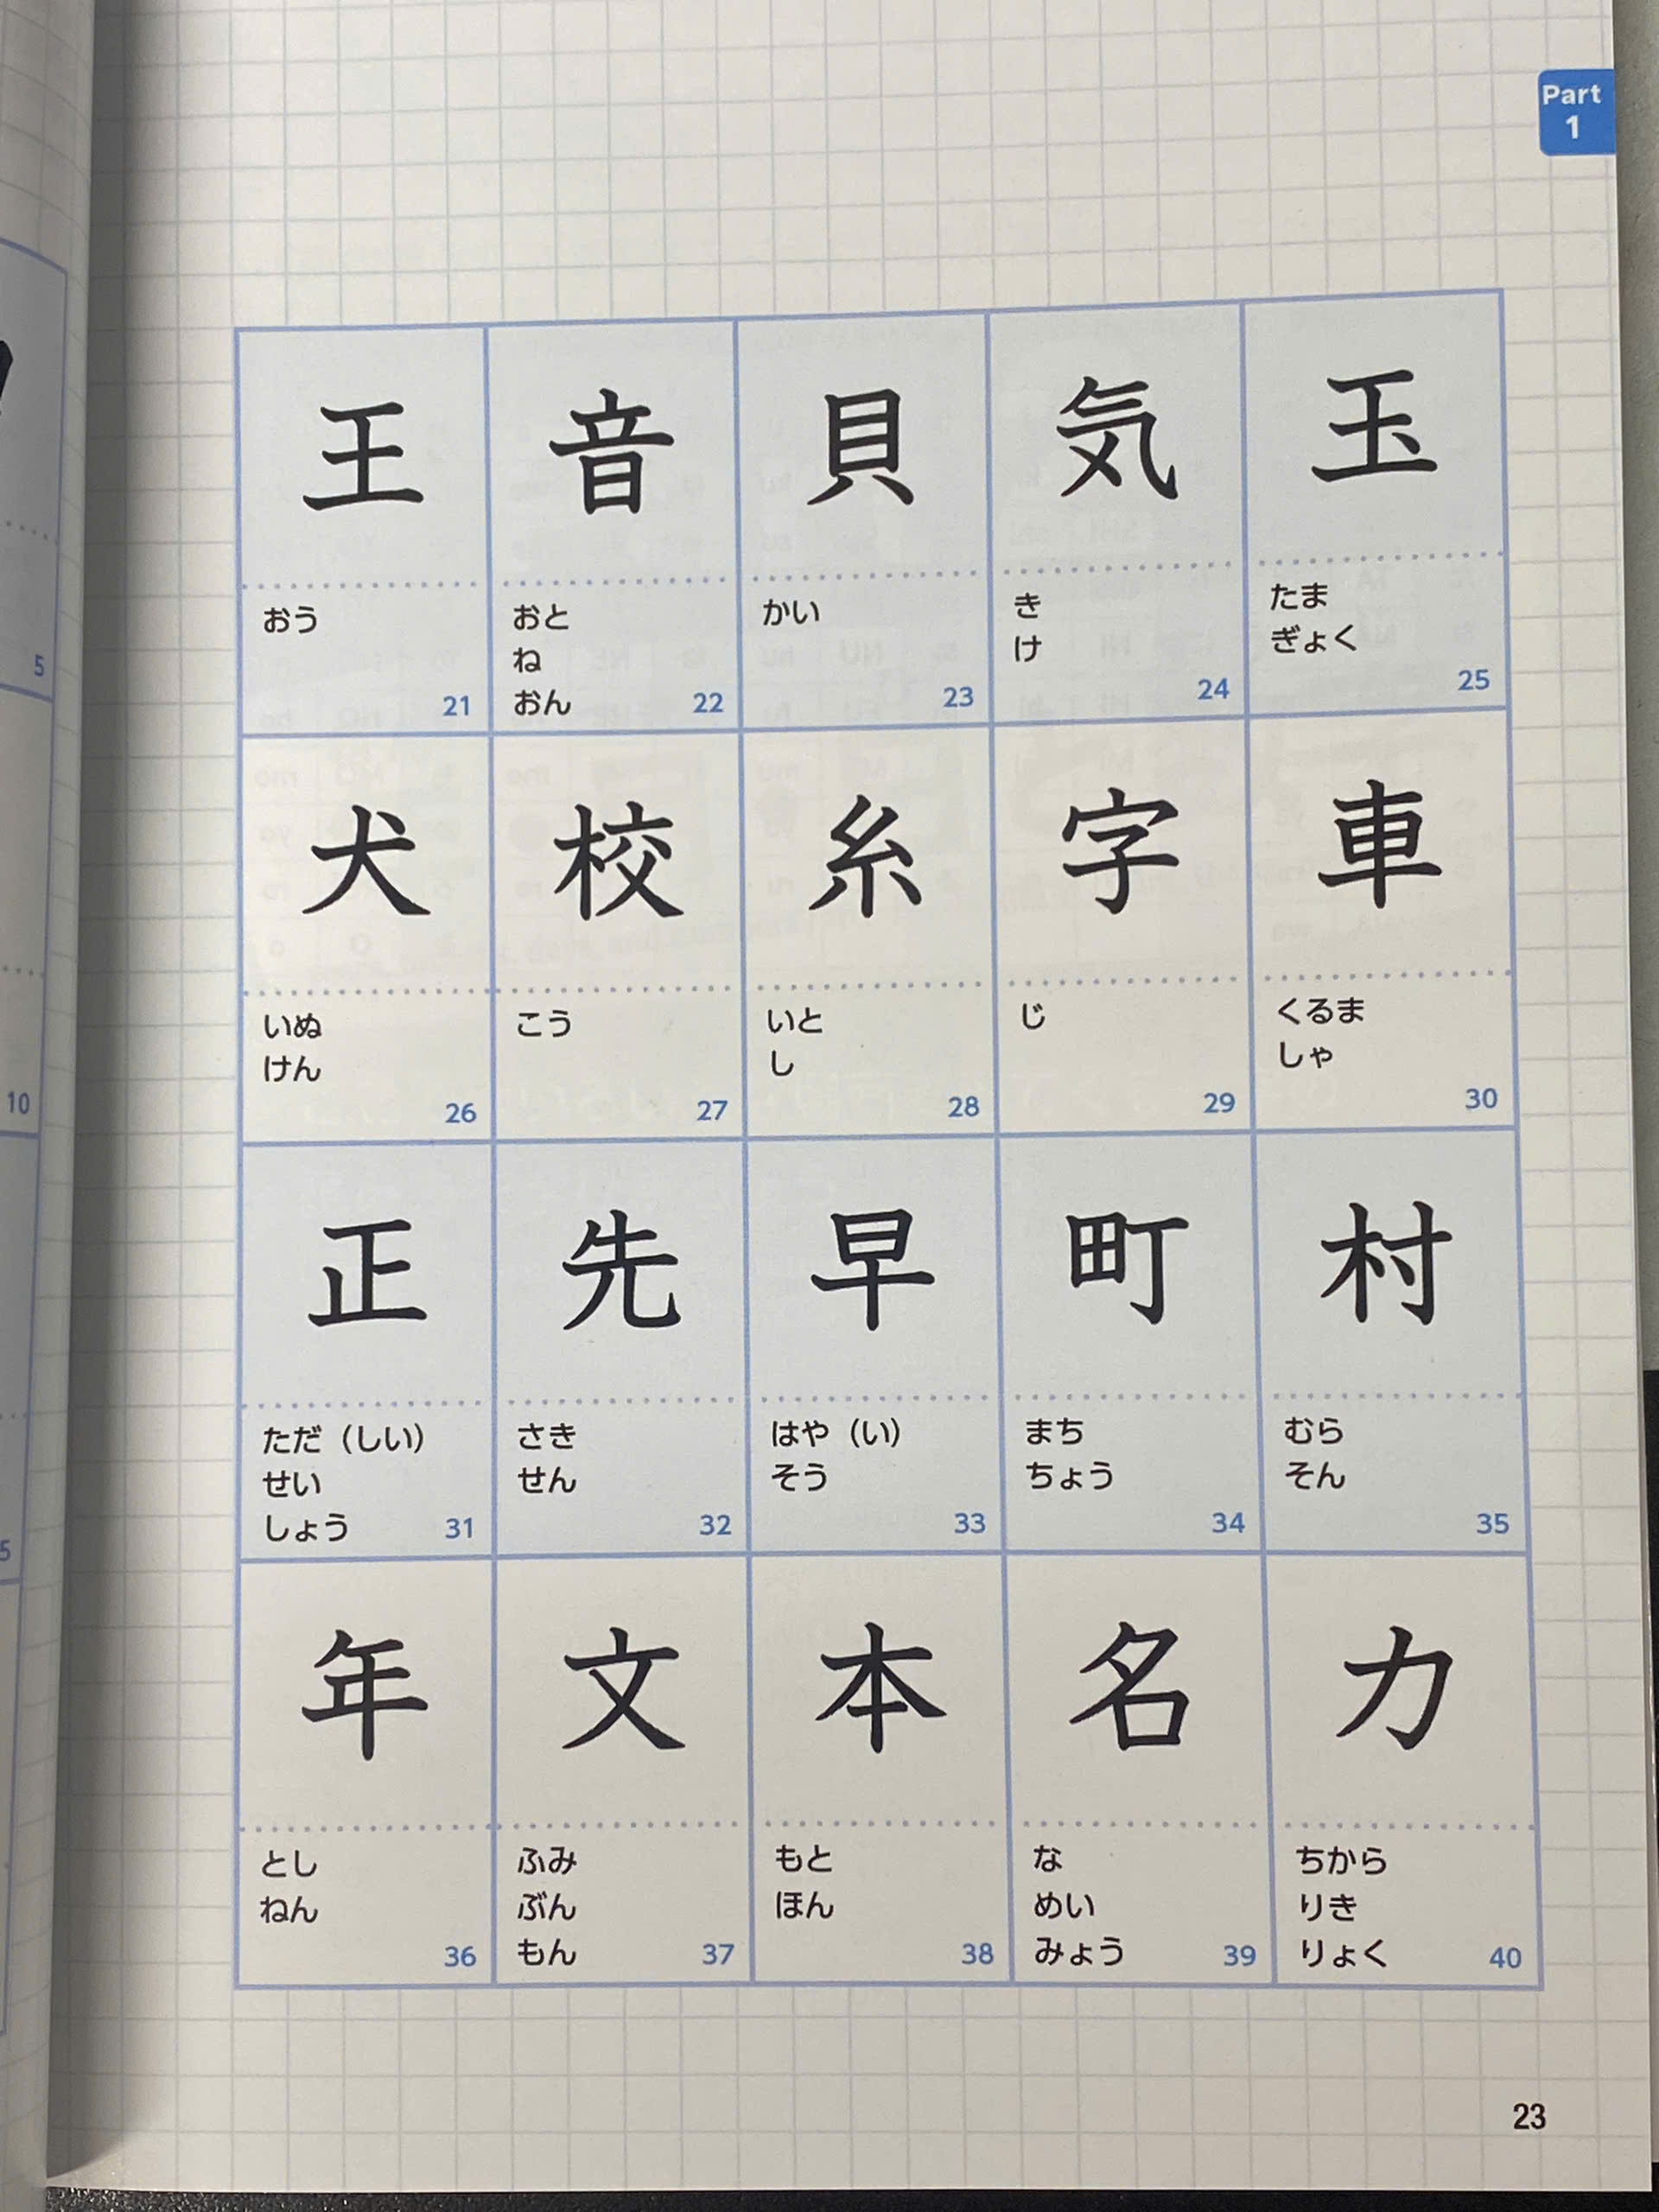 Part
1
王
おう
21
音
おと
ね
おん
22
貝
かい
23
気
き
け
24
玉
たま
ぎょく
25
犬
いぬ
けん
26
校
こう
27
糸
いと
し
28
字
じ
29
車
くるま
しゃ
30
正
ただ（しい）
せい
しょう
31
先
さき
せん
32
早
はや（い）
そう
33
町
まち
ちょう
34
村
むら
そん
35
年
とし
ねん
36
文
ふみ
ぶん
もん
37
本
もと
ほん
38
名
な
めい
みょう
39
力
ちから
りき
りょく
40
23
5
10
5